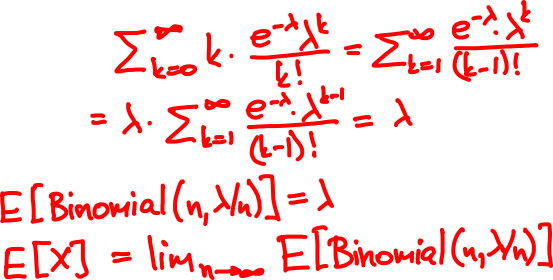 ∑_{k=0}^{∞} k · \frac{e^{-λ} λ^k}{k!} = ∑_{k=1}^{∞} \frac{e^{-λ} · λ^k}{(k-1)!}
= λ · ∑_{k=1}^{∞} \frac{e^{-λ} · λ^{k-1}}{(k-1)!} = λ
E[Binomial(n, λ/n)] = λ
E[X] = lim_{n→∞} E[Binomial(n, λ/n)]